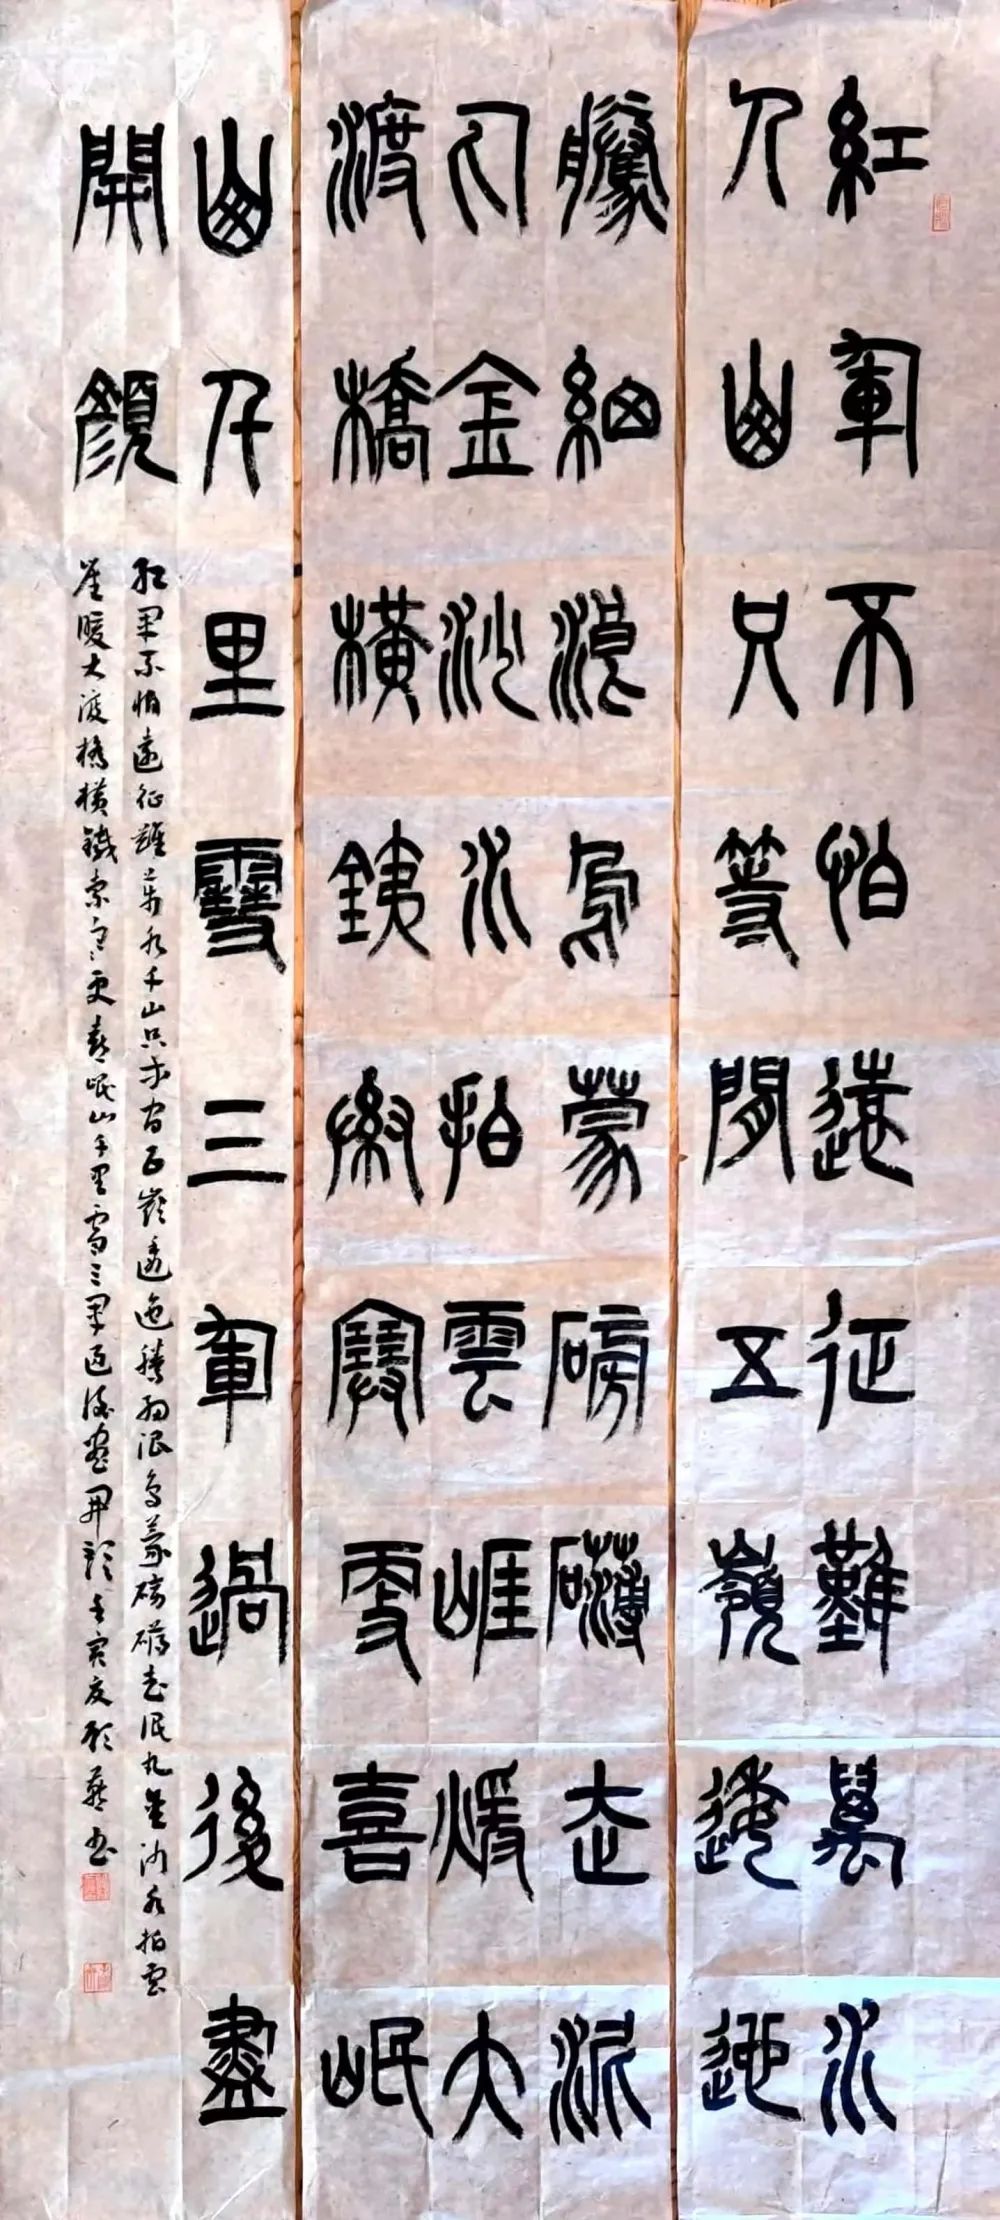 紅軍不怕遠征難萬水
千山只等閒五嶺逶迤
騰細浪烏蒙磅礴走泥
丸金沙水拍雲崖煖大
渡橋橫鐵索寒更喜岷
山千里雪三軍過後盡
開顏
紅軍不怕遠征難萬水千山只等閒五嶺逶迤騰細浪烏蒙磅礴走泥丸金沙水拍雲
崖暖大渡橋橫鐵索寒更喜岷山千里雪三軍過後盡開顏壬寅夏書